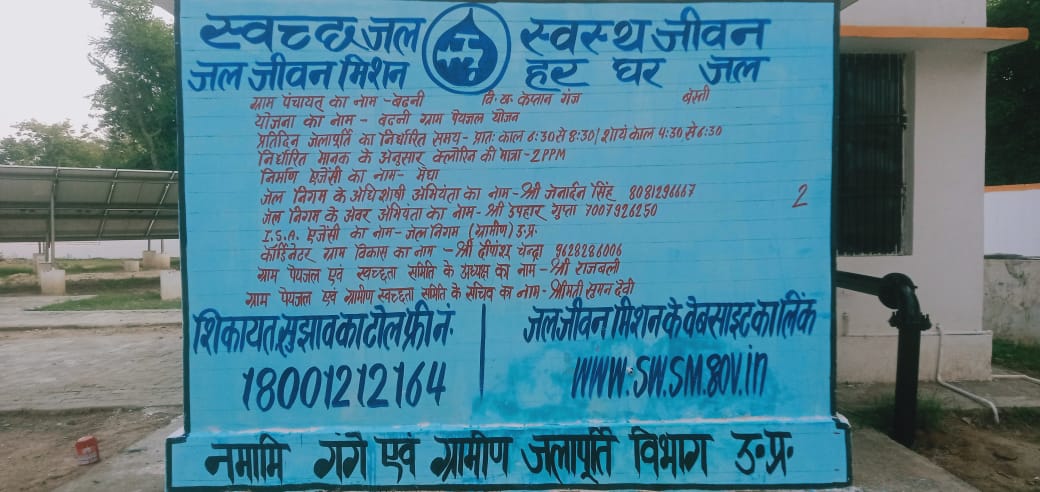 स्वच्छ जल स्वस्थ जीवन
जल जीवन मिशन हर घर जल
ग्राम पंचायत का नाम - बदनी वि. ख. केप्तान गंज बस्ती
योजना का नाम - बदनी ग्राम पेयजल योजन
प्रतिदिन जलापूर्ति का निर्धारित समय - प्रातः काल 6:30 से 8:30/ शायं काल 4:30 से 6:30
निर्धारित मानक के अनुसार क्लोरिन की मात्रा - 2PPM
निर्माण एजेंसी का नाम - मेघा
जल निगम के अधिशाषी अभियंता का नाम - श्री जनार्दन सिंह 8081296667 2
जल निगम के अवर अभियंता का नाम - श्री उपहार गुप्ता 7007926250
I.S.A. एजेंसी का नाम - जल निगम (ग्रामीण) उ.प्र.
कॉर्डिनेटर ग्राम विकास का नाम - श्री दीणेश चन्द्रा 9628286006
ग्राम पेयजल एवं स्वच्छता समिति के अध्यक्ष का नाम - श्री राजबली
ग्राम पेयजल एवं ग्रामीण स्वच्छता समिति के सचिव का नाम - श्रीमती सुमन देवी
शिकायत, सुझाव का टोल फ्री नं.
18001212164
जल जीवन मिशन के वेबसाइट का लिंक
WWW.SWSM.gov.in
नमामि गंगे एवं ग्रामीण जलापूर्ति विभाग उ॰प्र॰